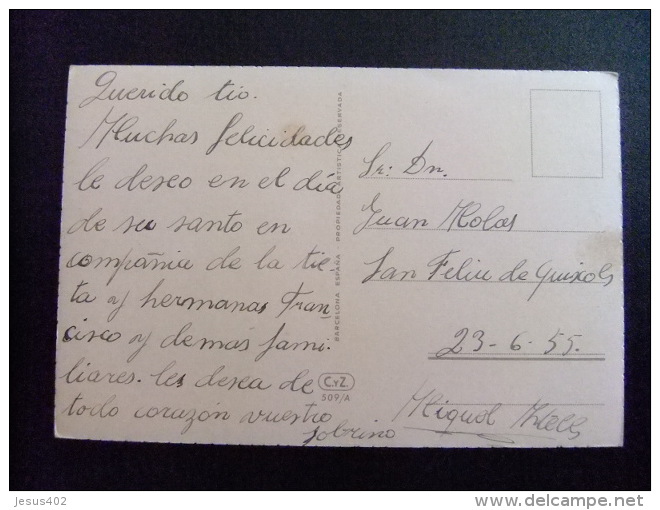 Querido tio.
Muchas felicidades
le deseo en el día
de su santo en
compañia de la tie-
ta y hermanas Fran-
cisco y demás fami-
liares. les desea de
todo corazón vuestro
sobrino
BARCELONA ESPAÑA - PROPIEDAD ARTISTICA RESERVADA
C.y Z.
509/A
Sr: Dn.
Juan Molas
San Feliu de Guixols
23-6-55.
Miquel
Jesus402
delcampe.net